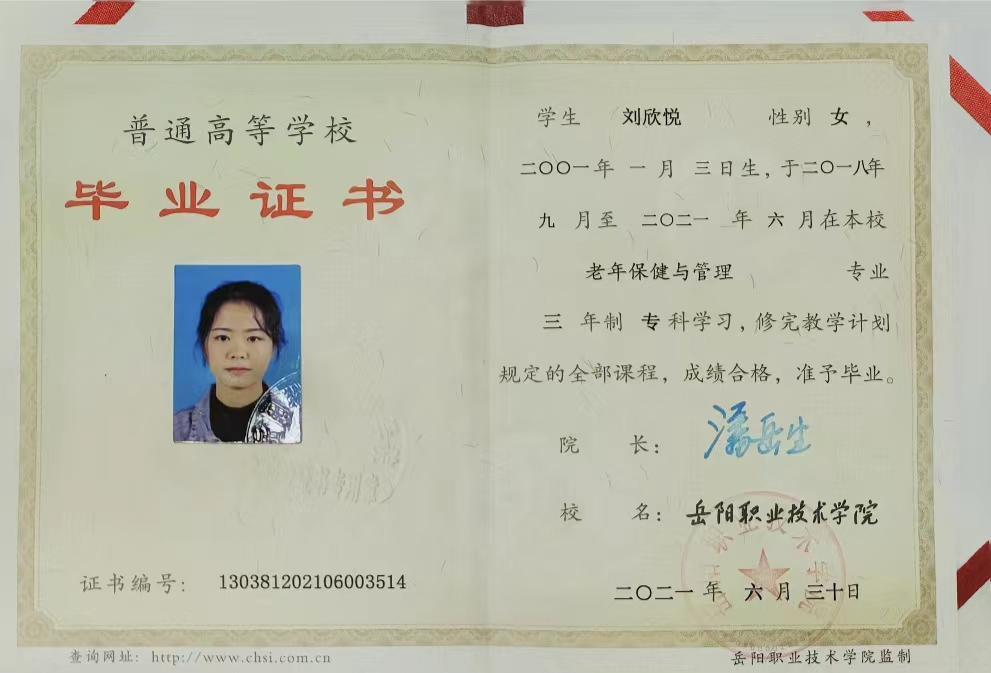 普通高等学校
毕业证书
证书编号： 130381202106003514
查询网址： http://www.chsi.com.cn
学生 刘欣悦 性别 女 ，
二〇〇一年 一 月 三 日生，于二〇一八年
九 月至 二〇二一 年 六 月在本校
老年保健与管理 专业
三 年制 专 科学习，修完教学计划
规定的全部课程，成绩合格，准予毕业。
院 长： 潘岳生
校 名： 岳阳职业技术学院
二〇二一 年 六 月 三十日
岳阳职业技术学院监制